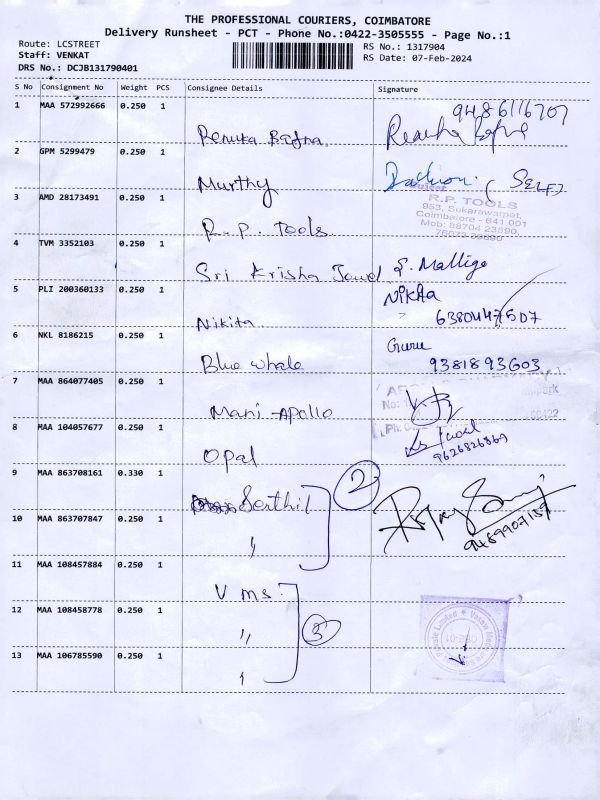 THE PROFESSIONAL COURIERS, COIMBATORE
Delivery Runsheet - PCT - Phone No.:0422-3505555 - Page No.:1
Route: LCSTREET
RS No.: 1317904
Staff: VENKAT
RS Date: 07-Feb-2024
DRS No.: DCJB131790401
S No Consignment No Weight PCS Consignee Details Signature
1 MAA 572992666 0.250 1
9486116707
Renuka Bafna
2 GPM 5299479 0.250 1
Murthy
(SELF)
3 AMD 28173491 0.250 1
R.P. TOOLS
953, Sukarawarpet,
Coimbatore - 641 001
Mob: 88704 23890,
R.P. Tools
4 TVM 3352103 0.250 1
Sri Krisha Jewel S. Malliga
5 PLI 200360133 0.250 1
Nikita
Nikita 6380447507
6 NKL 8186215 0.250 1
Guru
Blue whale 9381893603
7 MAA 864077405 0.250 1
Mani - Apollo
8 MAA 104057677 0.250 1
Opal 9626826869
9 MAA 863708161 0.330 1
Senthil 2
10 MAA 863707847 0.250 1
〃 9489907189
11 MAA 108457884 0.250 1
V ms.
12 MAA 108458778 0.250 1
〃 3
13 MAA 106785590 0.250 1
〃